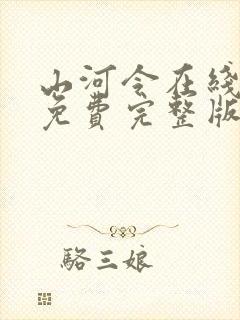 山河令在线
免费完整版
骆三娘